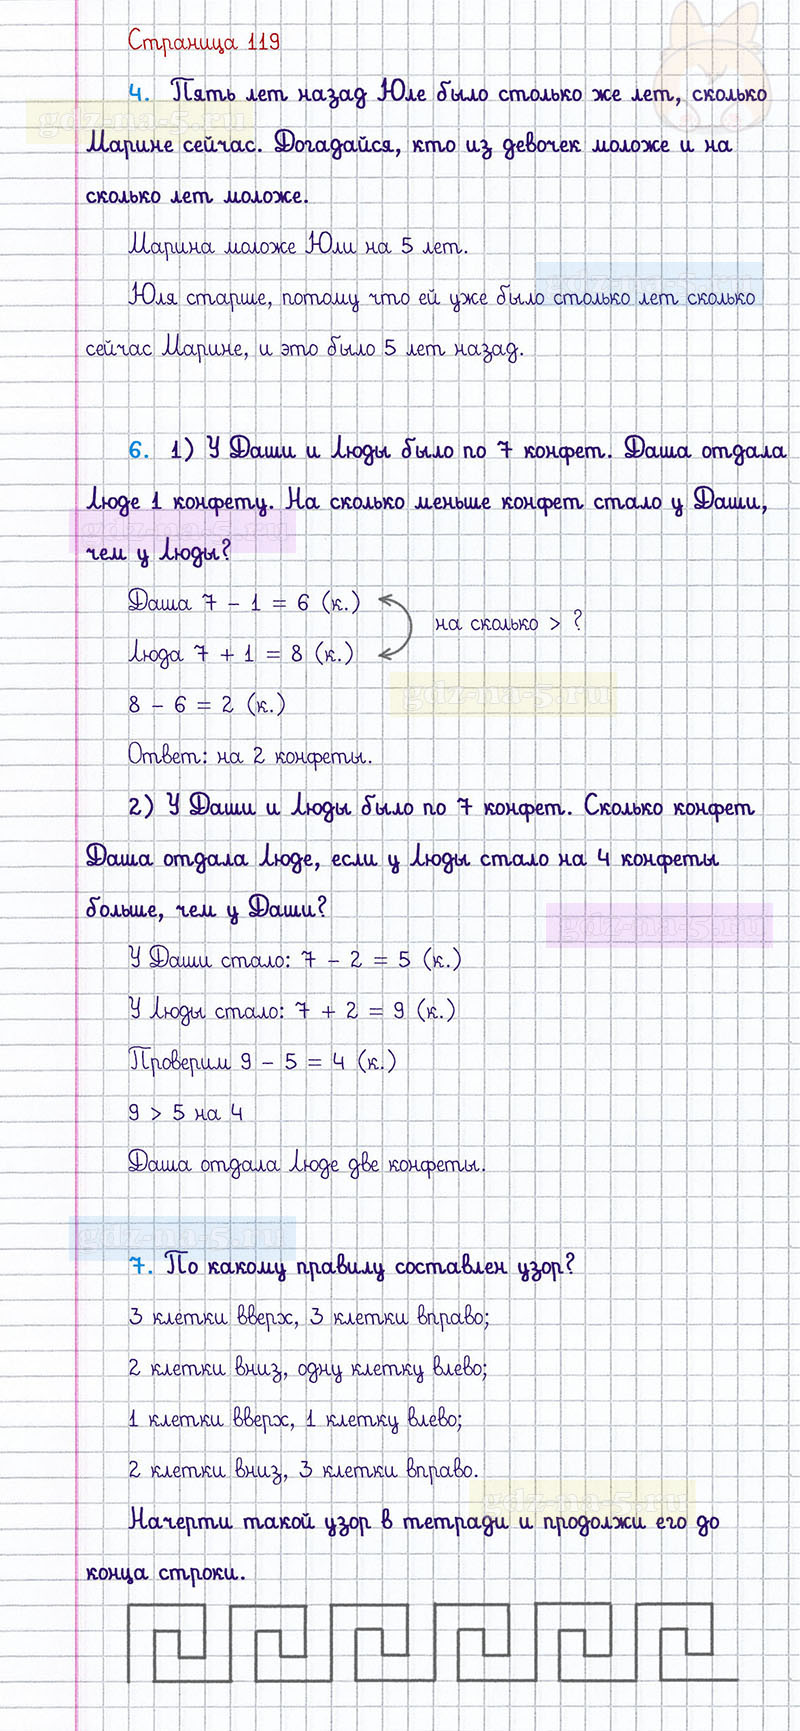 Страница 119
4. Пять лет назад Юле было столько же лет, сколько
gdz-na-5.ru
Марине сейчас. Догадайся, кто из девочек моложе и на
сколько лет моложе.
Марина моложе Юли на 5 лет.
gdz-na-5.ru
Юля старше, потому что ей уже было столько лет сколько
сейчас Марине, и это было 5 лет назад.
6. 1) У Даши и Люды было по 7 конфет. Даша отдала
Люде 1 конфету. На сколько меньше конфет стало у Даши,
gdz-na-5.ru
чем у Люды?
Даша 7 - 1 = 6 (к.)
на сколько > ?
Люда 7 + 1 = 8 (к.)
gdz-na-5.ru
8 - 6 = 2 (к.)
Ответ: на 2 конфеты.
2) У Даши и Люды было по 7 конфет. Сколько конфет
Даша отдала Люде, если у Люды стало на 4 конфеты
больше, чем у Даши?
gdz-na-5.ru
У Даши стало: 7 - 2 = 5 (к.)
У Люды стало: 7 + 2 = 9 (к.)
Проверим 9 - 5 = 4 (к.)
9 > 5 на 4
Даша отдала Люде две конфеты.
gdz-na-5.ru
7. По какому правилу составлен узор?
3 клетки вверх, 3 клетки вправо;
2 клетки вниз, одну клетку влево;
1 клетки вверх, 1 клетку влево;
2 клетки вниз, 3 клетки вправо.
gdz-na-5.ru
Начерти такой узор в тетради и продолжи его до
конца строки.